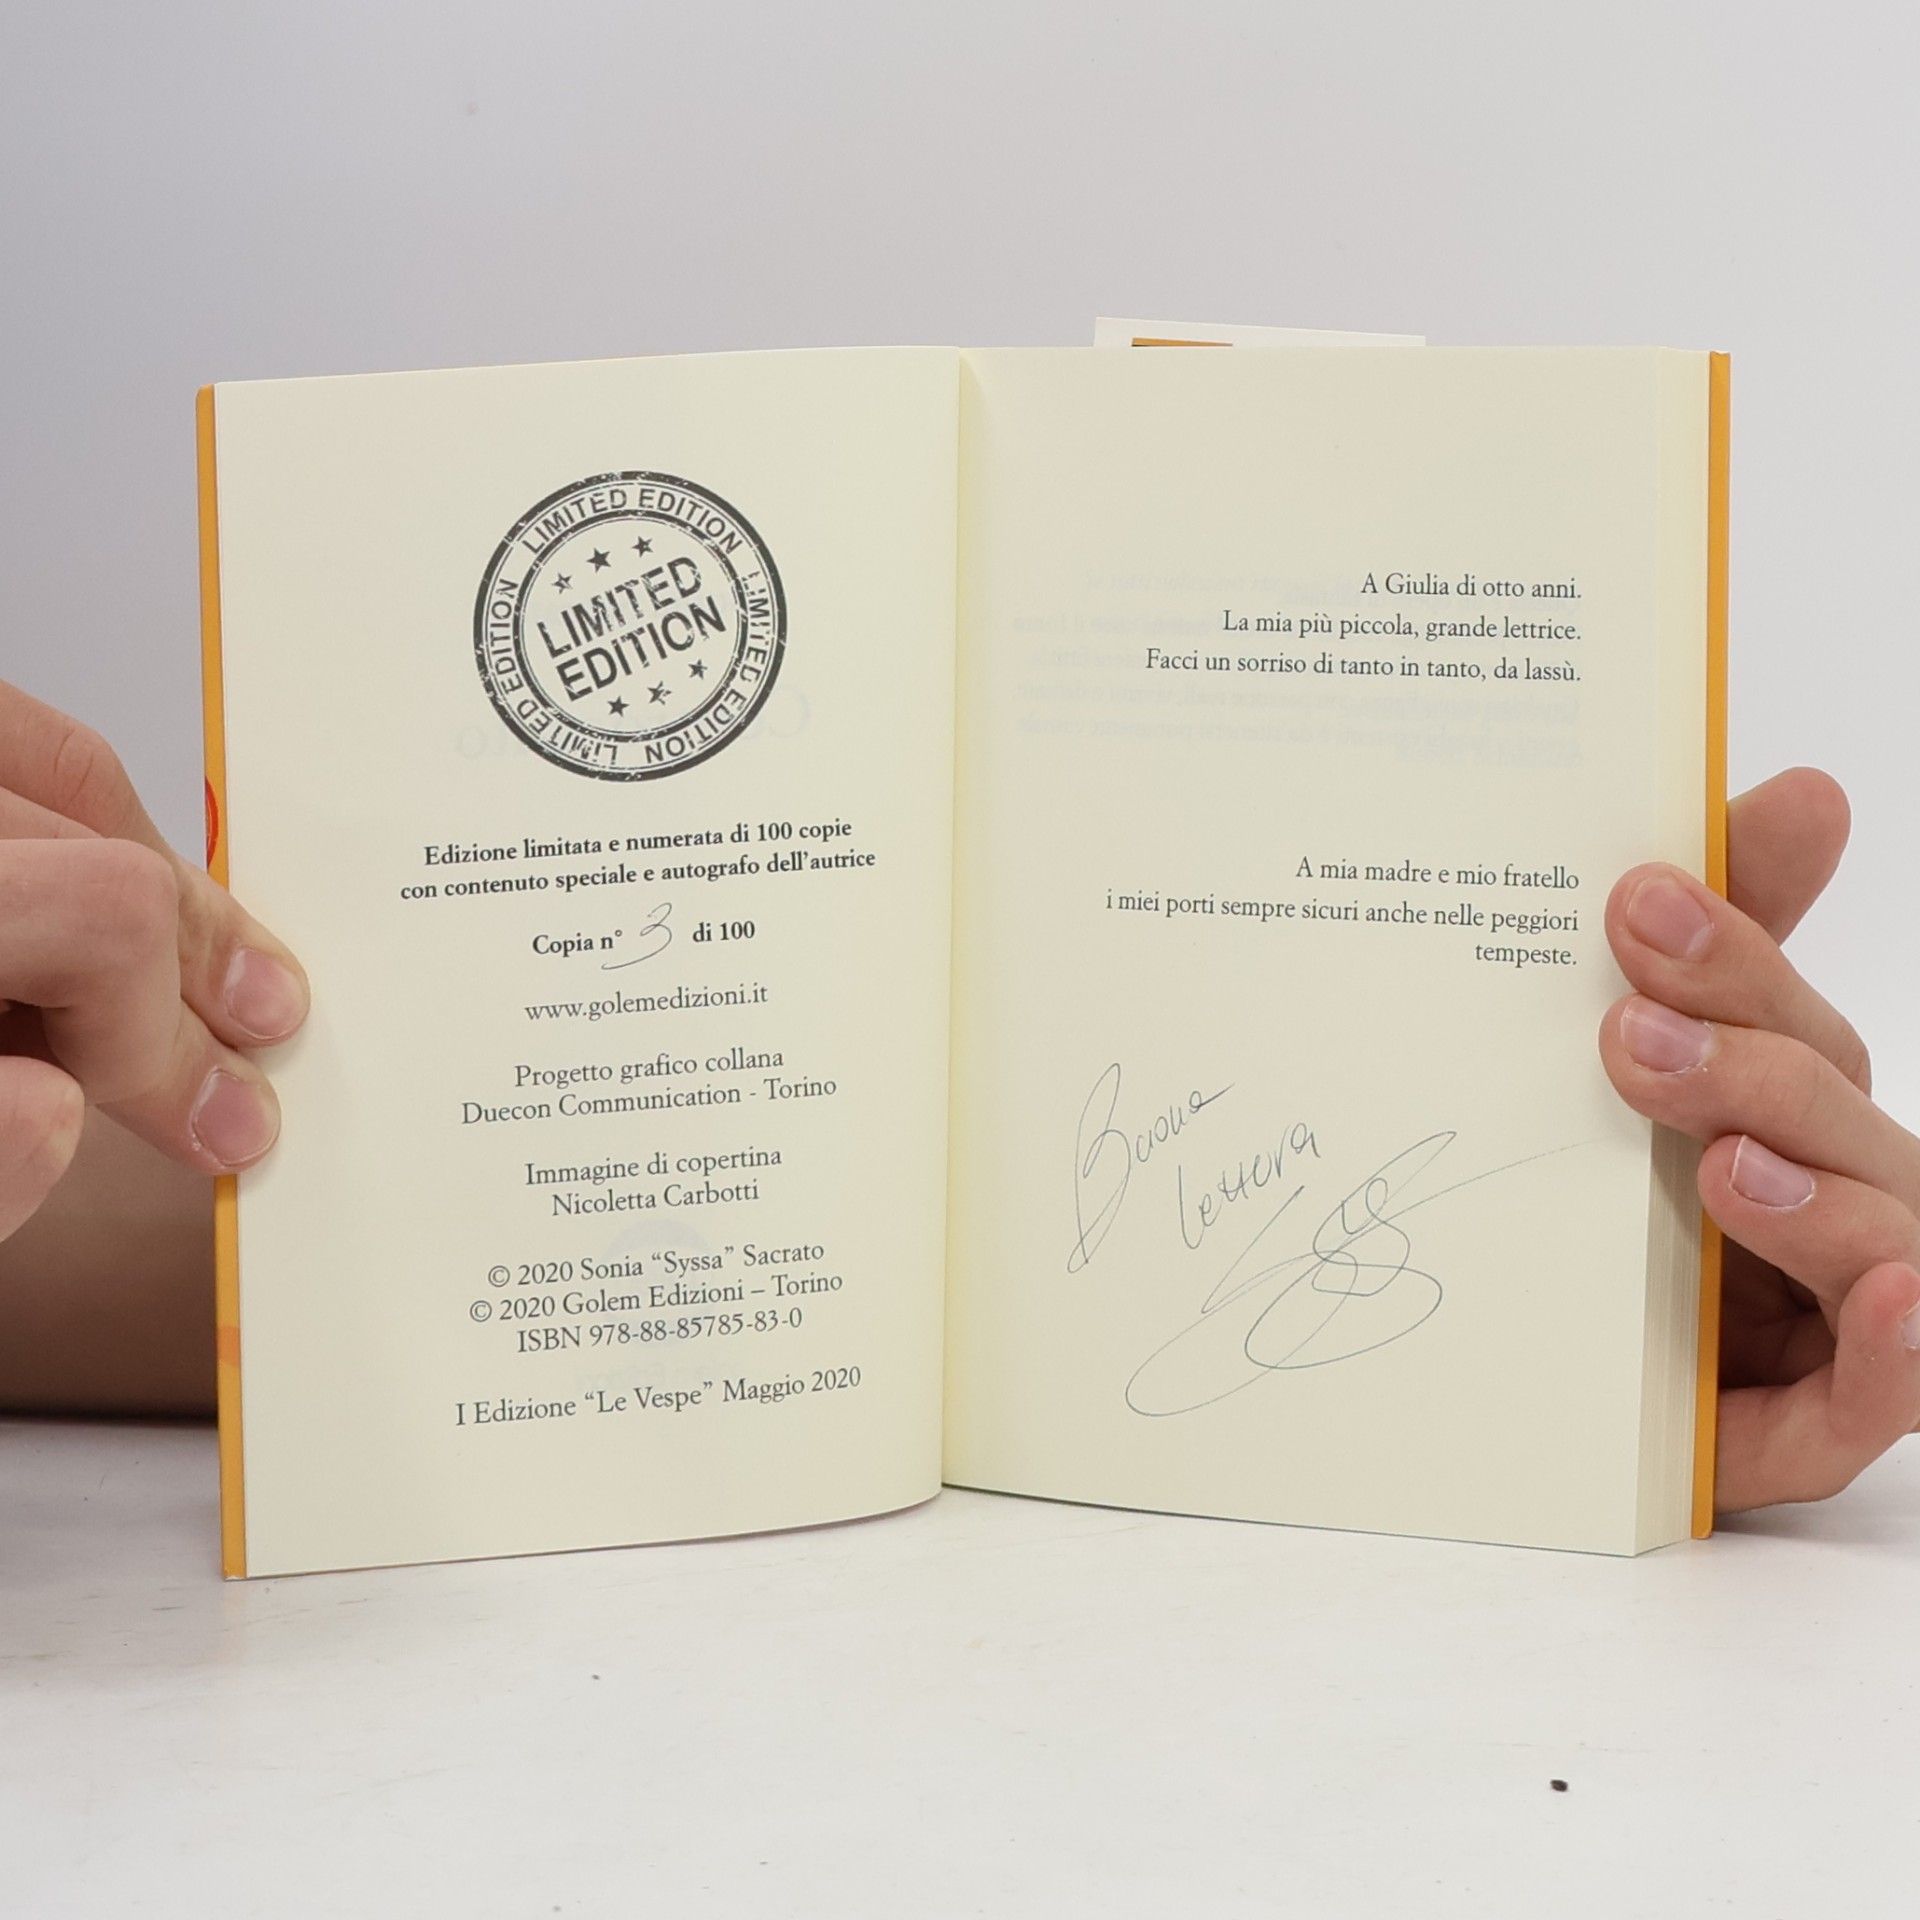 LIMITED EDITION
LIMITED EDITION
LIMITED EDITION
LIMITED EDITION
LIMITED
EDITION
Edizione limitata e numerata di 100 copie
con contenuto speciale e autografo dell'autrice
Copia n° 3 di 100
www.golemedizioni.it
Progetto grafico collana
Duecon Communication - Torino
Immagine di copertina
Nicoletta Carbotti
© 2020 Sonia “Syssa” Sacrato
© 2020 Golem Edizioni – Torino
ISBN 978-88-85785-83-0
I Edizione “Le Vespe” Maggio 2020
A Giulia di otto anni.
La mia più piccola, grande lettrice.
Facci un sorriso di tanto in tanto, da lassù.
A mia madre e mio fratello
i miei porti sempre sicuri anche nelle peggiori
tempeste.
Buona
lettura